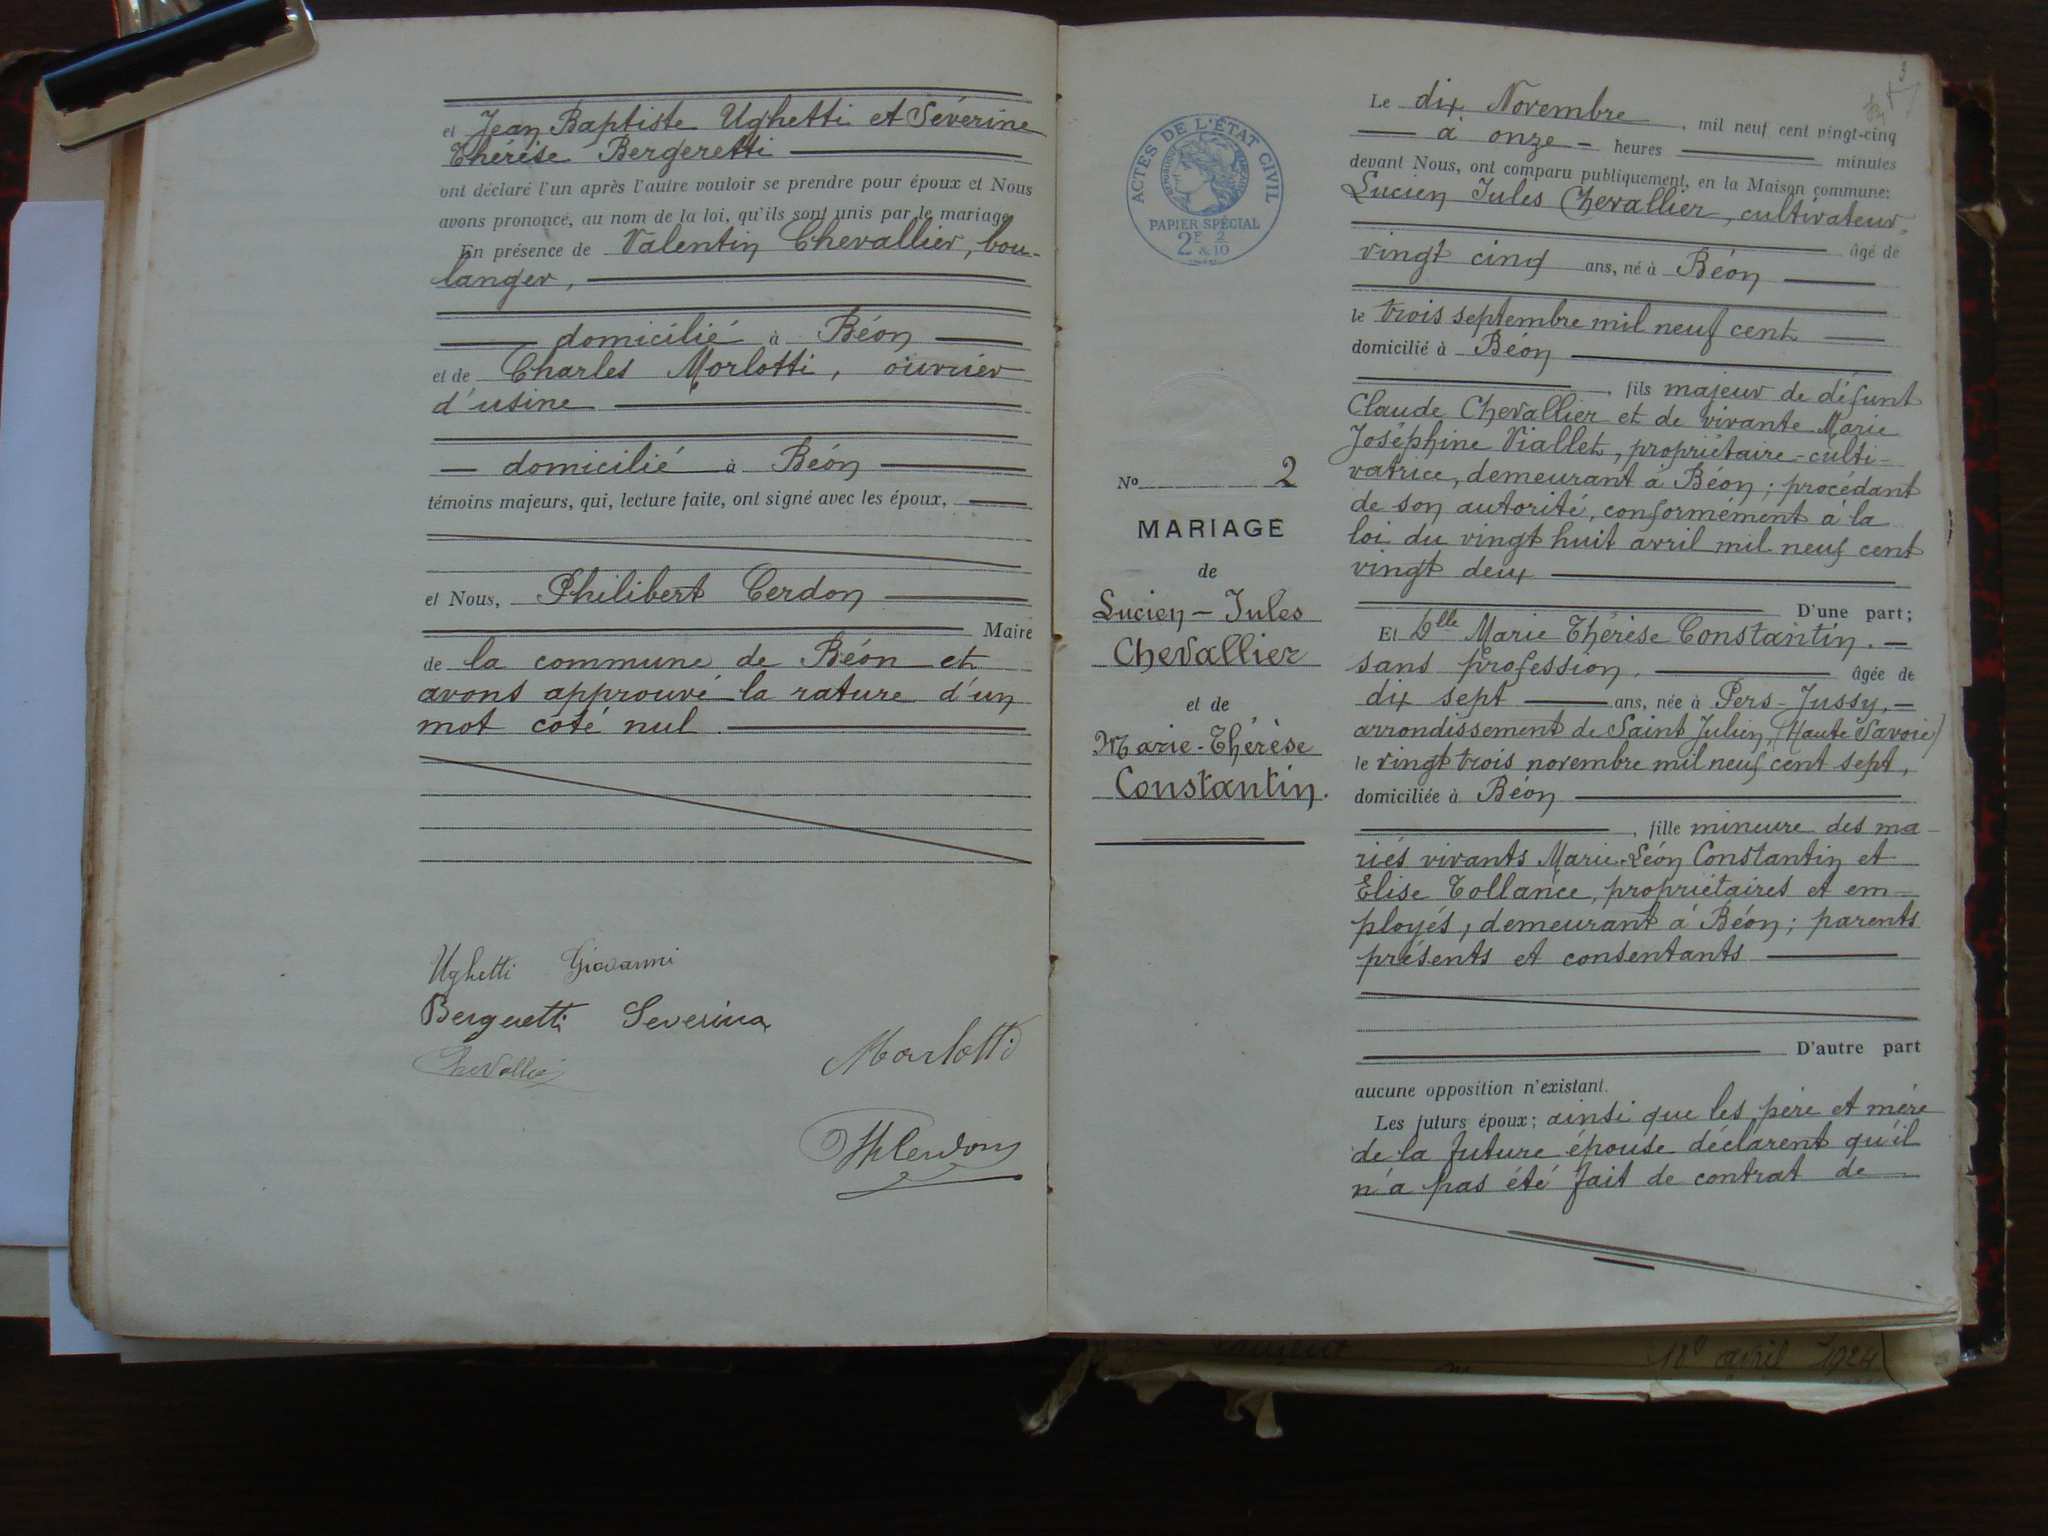 et Jean Baptiste Ughetti et Séverine
Thérèse Bergeretti
ont déclaré l'un après l'autre vouloir se prendre pour époux et Nous
avons prononcé, au nom de la loi, qu'ils sont unis par le mariage
En présence de Valentin Chevallier, bou-
langer,
domicilié à Béon
et de Charles Morlotti, ouvrier
d'usine
domicilié à Béon
témoins majeurs, qui, lecture faite, ont signé avec les époux,
et Nous, Philibert Cerdon
Maire
de la commune de Béon et
avons approuvé la rature d'un
mot coté nul
Ughetti Giovanni
Bergeretti Severina
Chevallier
Morlotti
Ph Cerdon
ACTES DE L'ÉTAT CIVIL
RÉPUBLIQUE FRANÇAISE
PAPIER SPÉCIAL
2F 2
& 10
No 2
MARIAGE
de
Lucien-Jules
Chevallier
et de
Marie-Thérèse
Constantin.
3
Le dix Novembre, mil neuf cent vingt-cinq
à onze heures minutes
devant Nous, ont comparu publiquement, en la Maison commune:
Lucien Jules Chevallier, cultivateur,
âgé de
vingt cinq ans, né à Béon
le trois septembre mil neuf cent
domicilié à Béon
, fils majeur de défunt
Claude Chevallier et de vivante Marie
Joséphine Viallet, propriétaire-culti-
vatrice, demeurant à Béon; procédant
de son autorité, conformément à la
loi du vingt huit avril mil neuf cent
vingt deux
D'une part;
Et Dlle Marie Thérèse Constantin.
sans profession, âgée de
dix sept ans, née à Pers-Jussy,
arrondissement de Saint Julien, (Haute Savoie)
le vingt trois novembre mil neuf cent sept,
domiciliée à Béon
, fille mineure des ma-
riés vivants Marie-Léon Constantin et
Elise Tollance, propriétaires et em-
ployés, demeurant à Béon; parents
présents et consentants
D'autre part
aucune opposition n'existant.
Les futurs époux; ainsi que les père et mère
de la future épouse déclarent qu'il
n'a pas été fait de contrat de
18 avril 1924